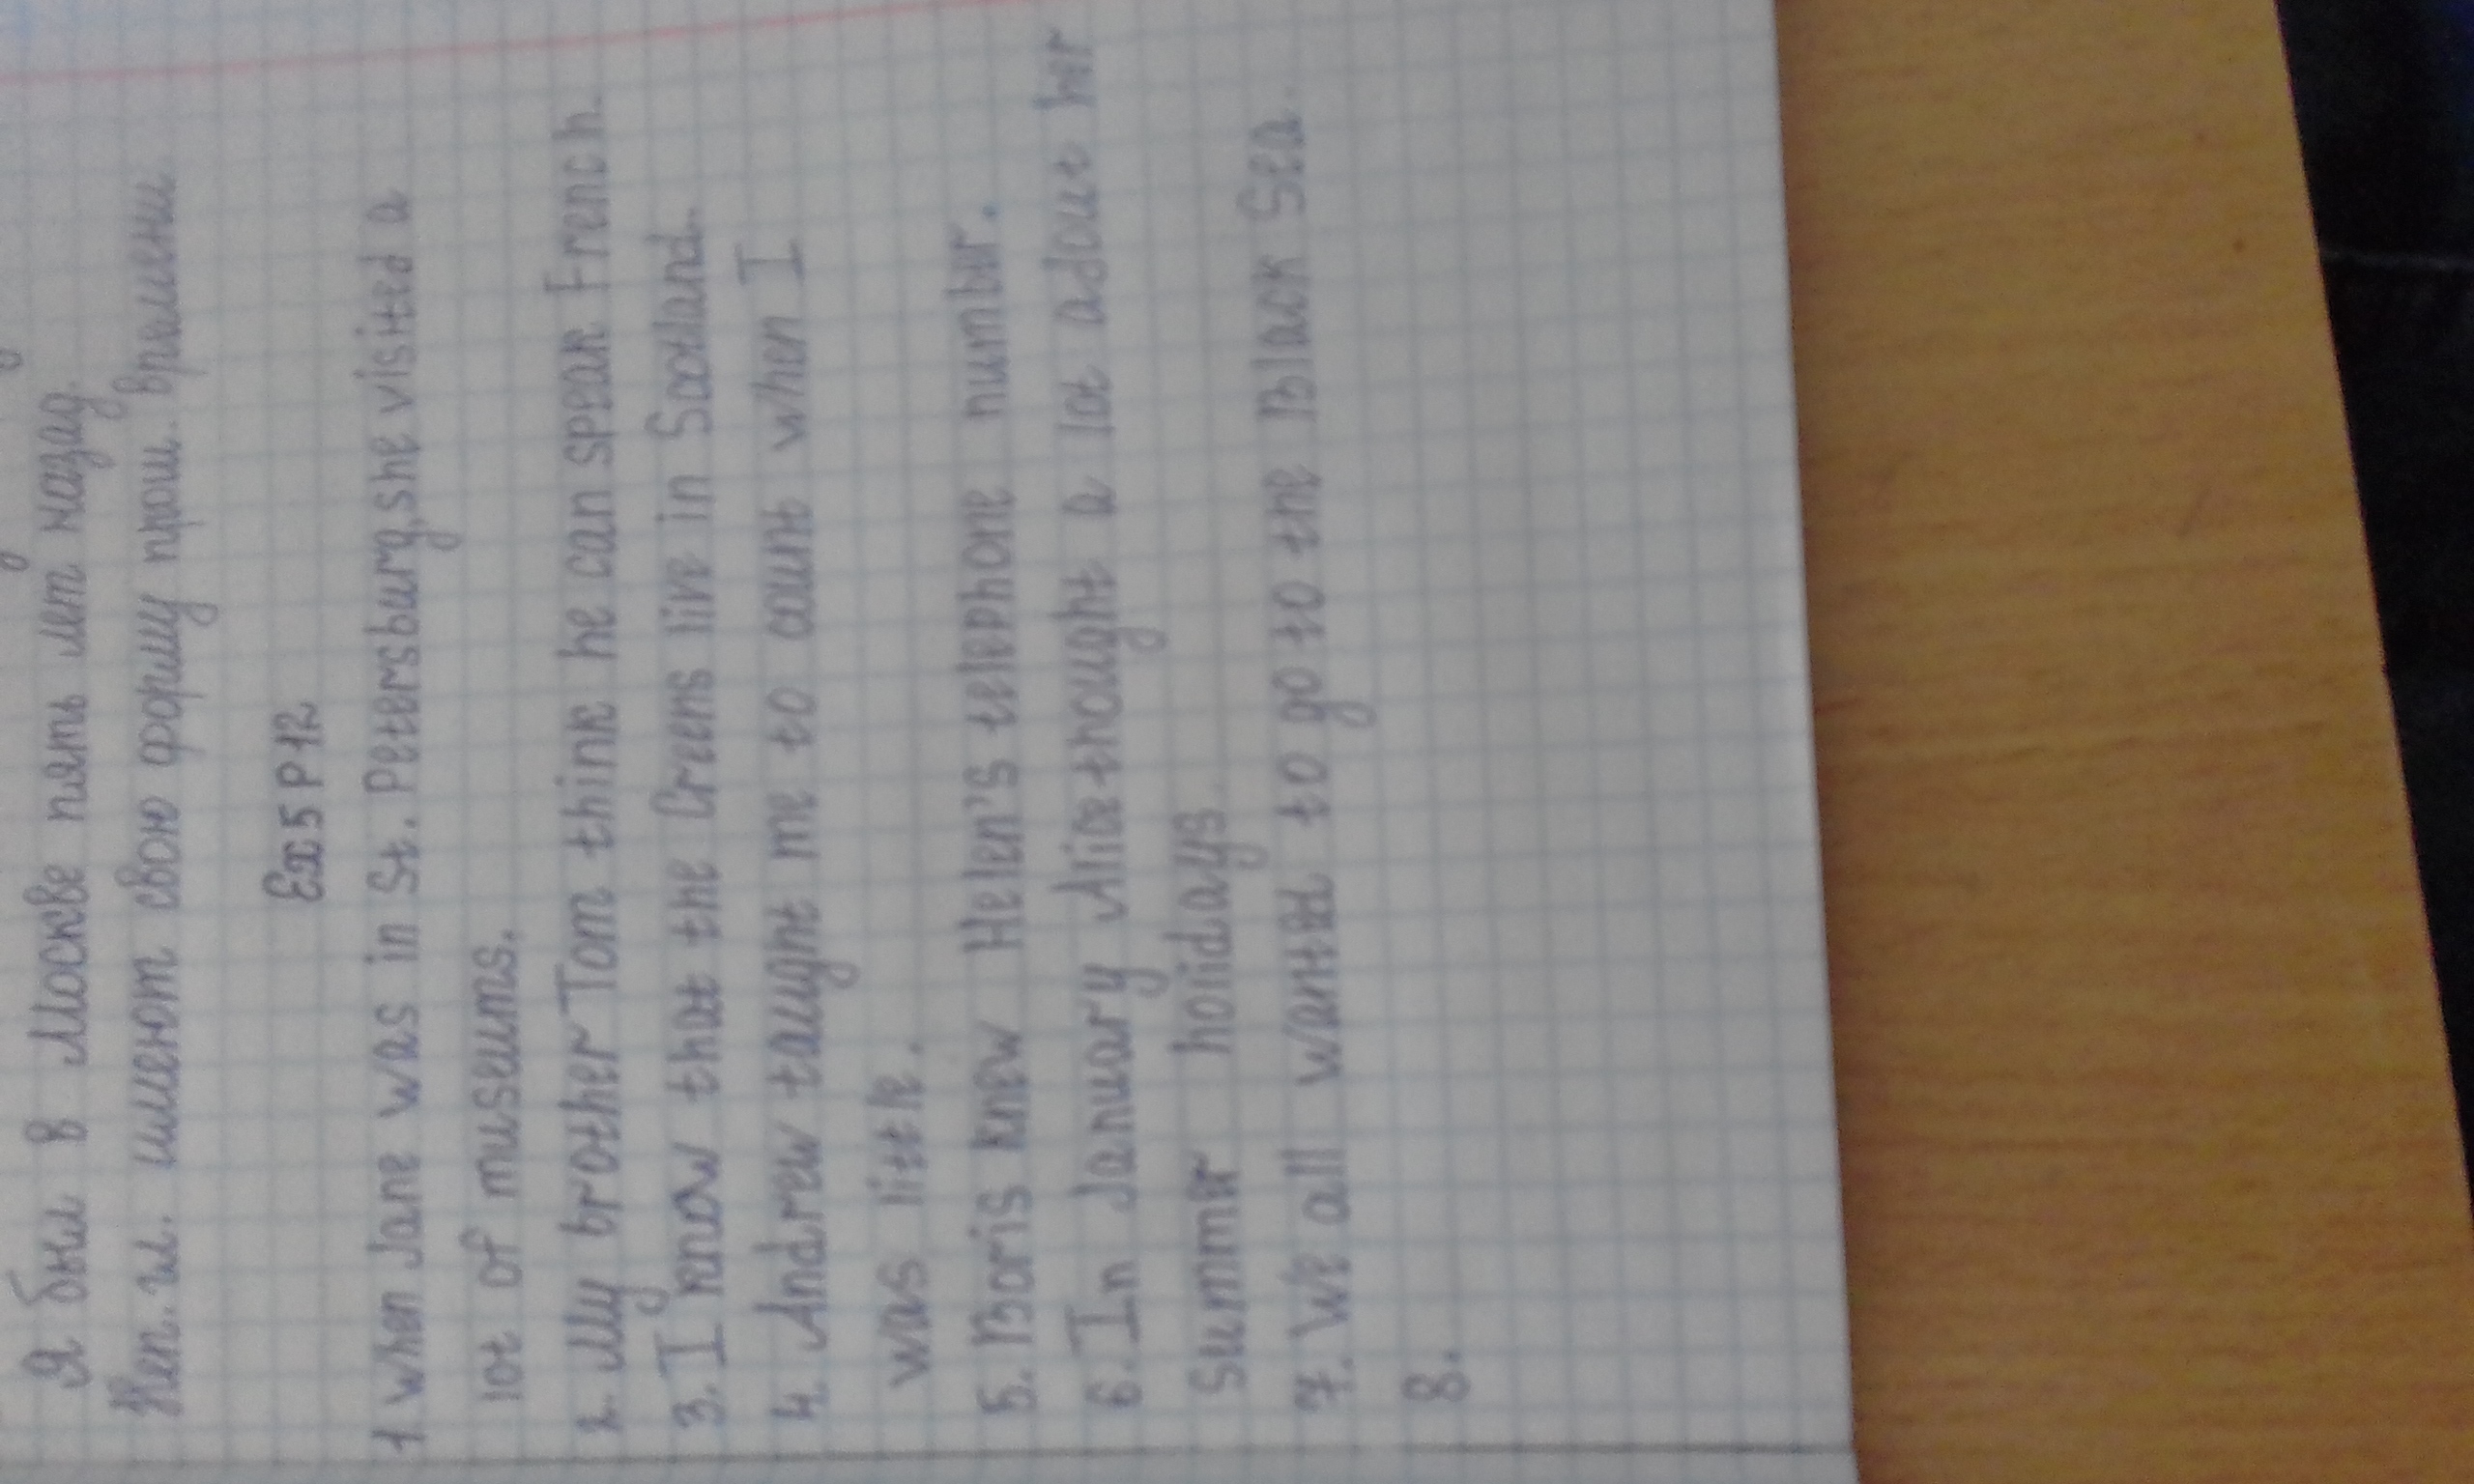 Я был в Москве пять лет назад.
имеют свою форму прош. времени
Ex 5 P 12
1. When Jane was in St. Petersburg, she visited a
lot of museums.
2. My brother Tom think he can speak French.
3. I know that the Greens live in Scotland.
4. Andrew taught me to count when I
was little.
5. Boris knew Helen's telephone number.
6. In January Alice thought a lot adout her
summer holidays.
7. We all wanted to go to the Black Sea.
8.